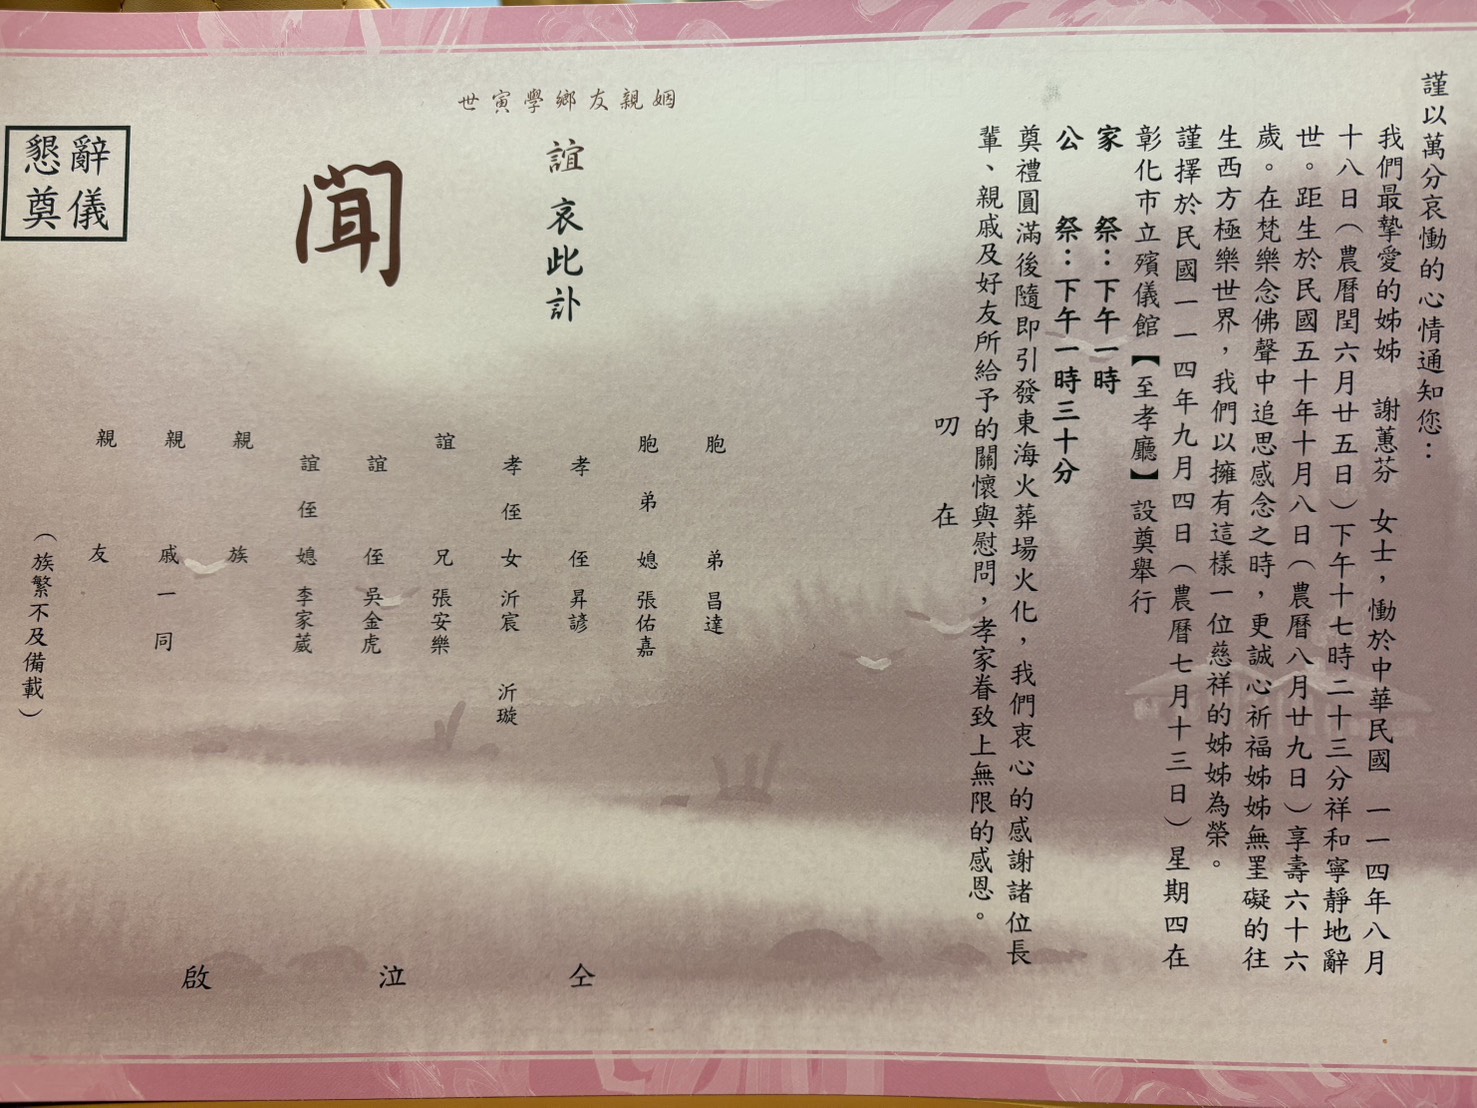 謹以萬分哀慟的心情通知您：
我們最摯愛的姊姊 謝蕙芬 女士，慟於中華民國 一一四年八月
十八日（農曆閏六月廿五日）下午十七時二十三分祥和寧靜地辭
世。距生於民國五十年十月八日（農曆八月廿九日）享壽六十六
歲。在梵樂念佛聲中追思感念之時，更誠心祈福姊姊無罣礙的往
生西方極樂世界，我們以擁有這樣一位慈祥的姊姊為榮。
謹擇於民國一一四年九月四日（農曆七月十三日）星期四在
彰化市立殯儀館【至孝廳】設奠舉行
家 祭：下午一時
公 祭：下午一時三十分
奠禮圓滿後隨即引發東海火葬場火化，我們衷心的感謝諸位長
輩、親戚及好友所給予的關懷與慰問，孝家眷致上無限的感恩。
叨 在
姻親友鄉學寅世
誼 哀此訃
聞
懇辭
奠儀
胞弟 昌達
胞弟媳 張佑嘉
孝侄 昇諺
孝侄女 沂宸 沂璇
誼兄 張安樂
誼侄 吳金虎
誼侄媳 李家葳
親族
親戚 一同
親友
（族繁不及備載）
仝 泣 啟